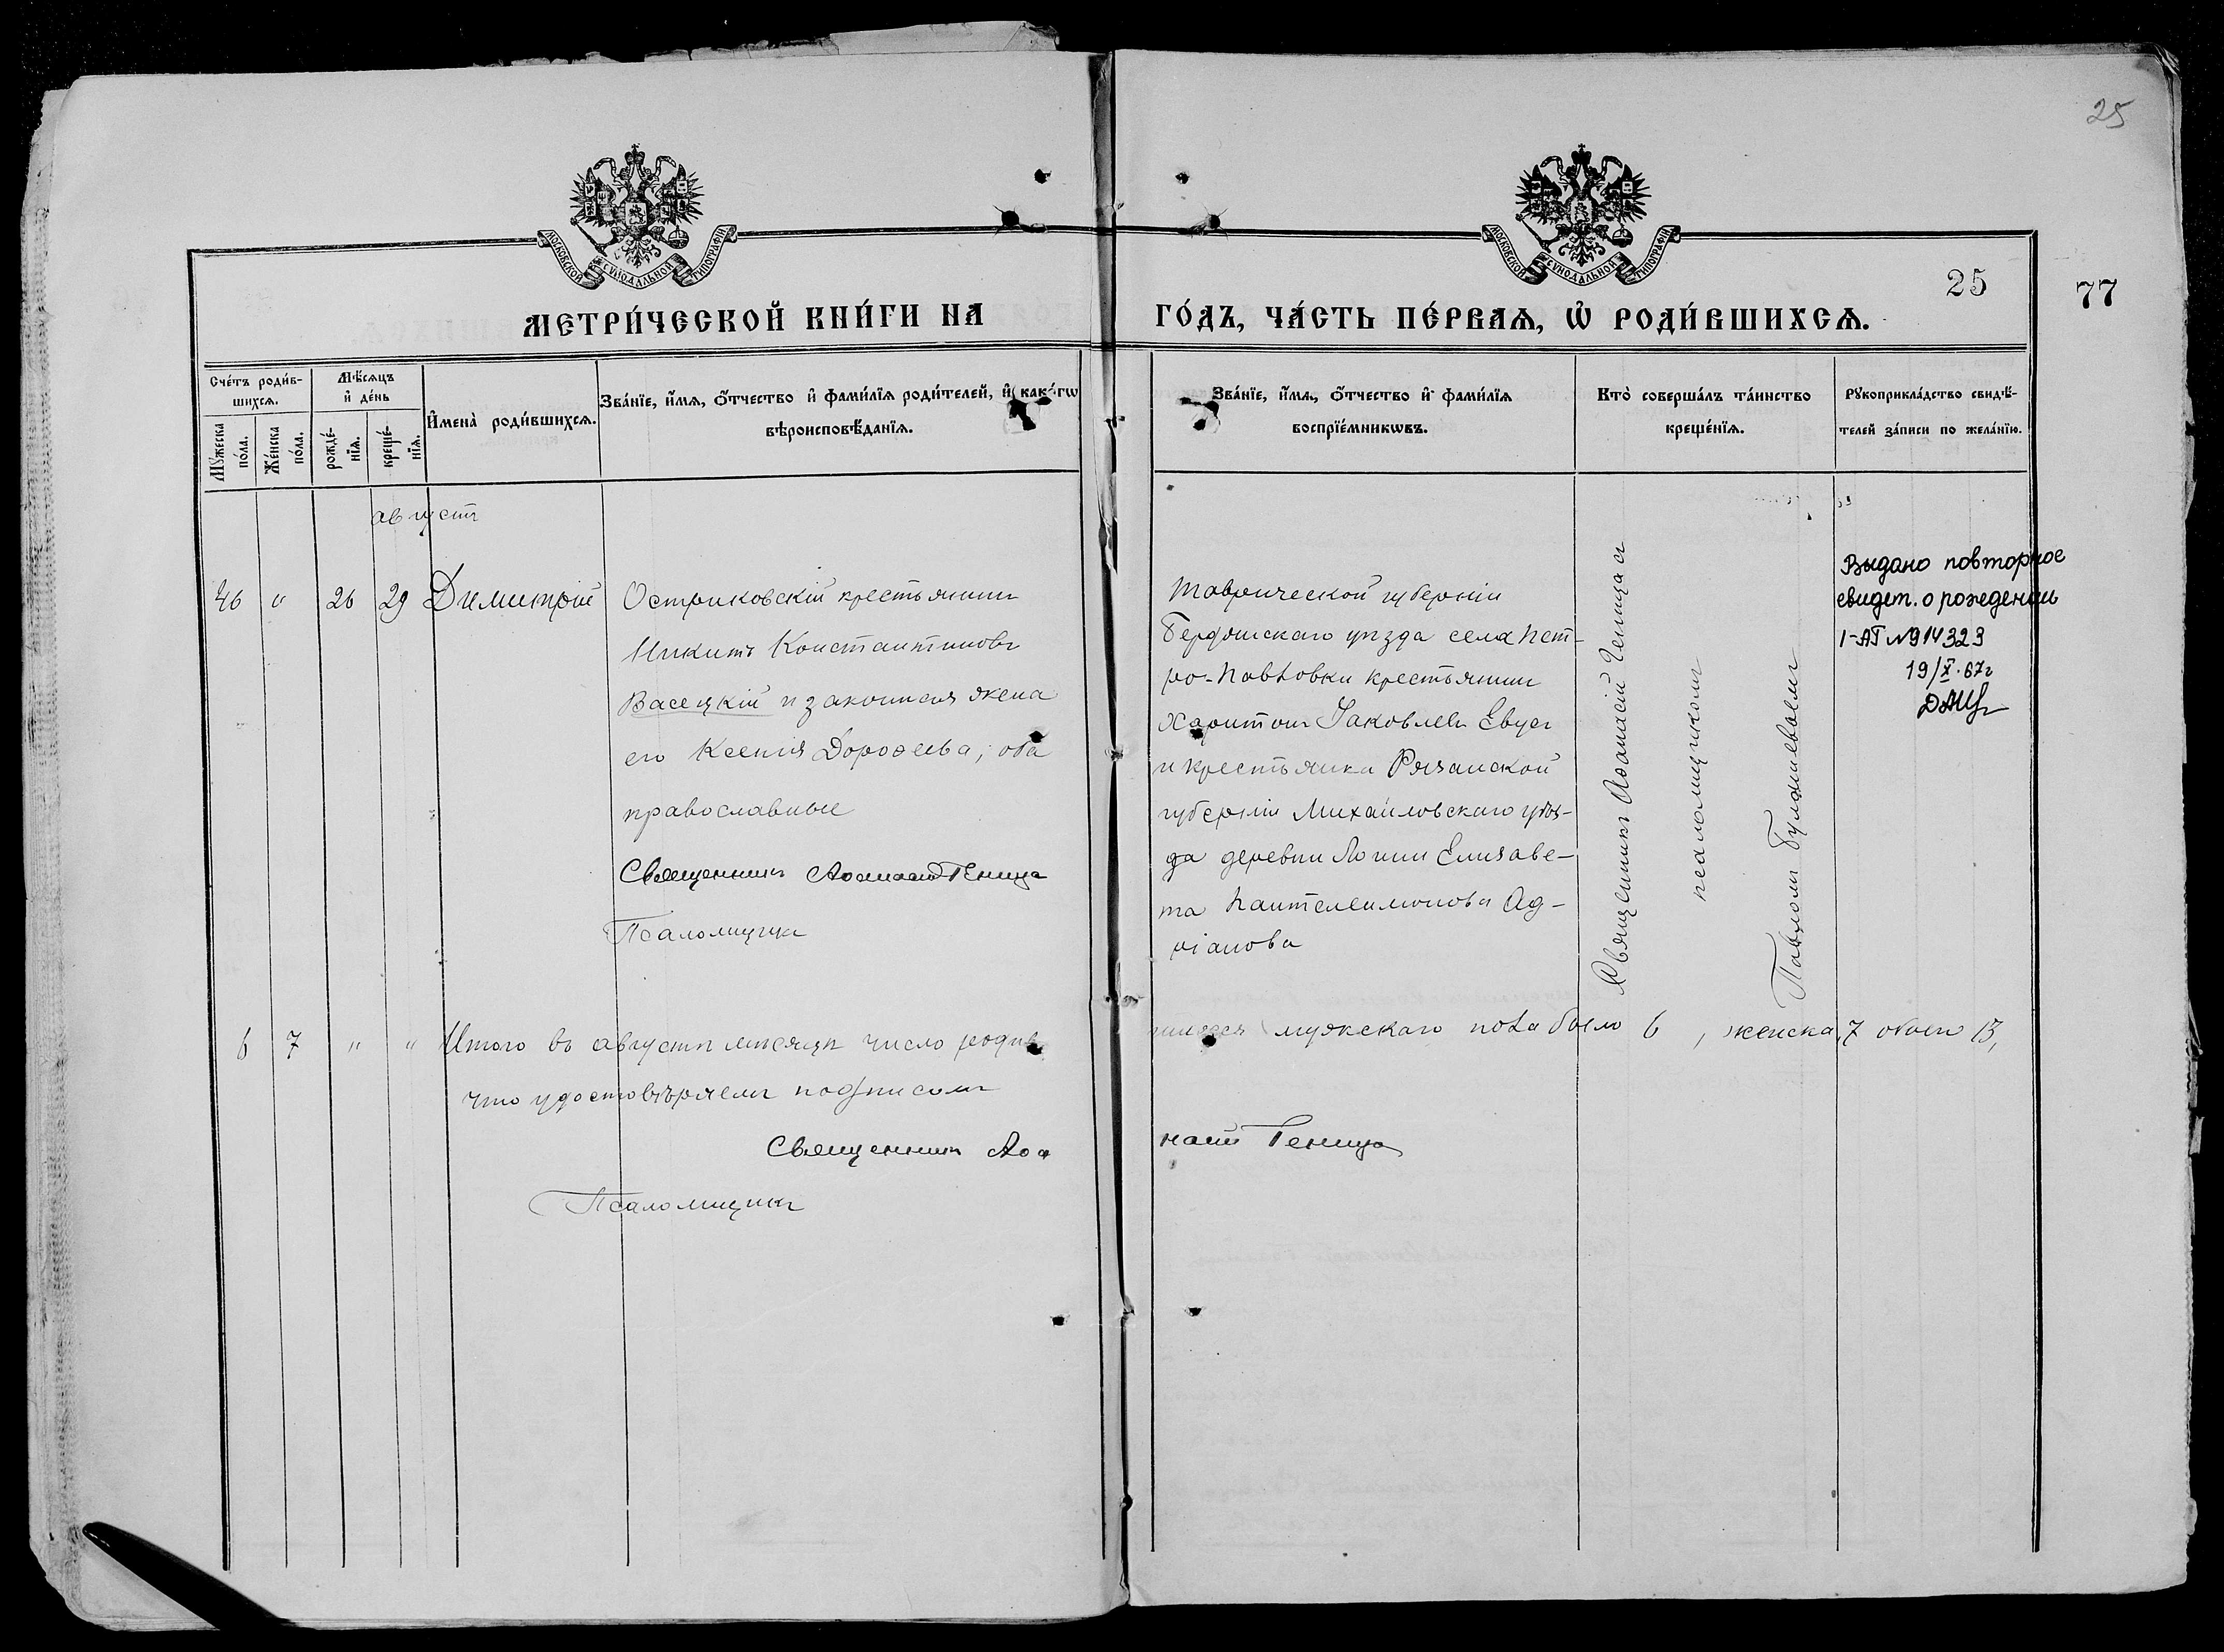 25
МОСКОВСКОЙ СѴНОДАЛЬНОЙ ТИПОГРАФІИ
МОСКОВСКОЙ СѴНОДАЛЬНОЙ ТИПОГРАФІИ
25
77
МЕТРИ́ЧЕСКОЙ КНИ́ГИ НА
ГО́ДЪ, ЧА́СТЬ ПЕ́РВАѦ, Ѡ҆ РОДИ́ВШИХСѦ.
Сче́тъ роди́в-
шихсѧ.
Мꙋ́жеска
по́ла.
Же́нска
по́ла.
Мѣ́сѧцъ
и҆ де́нь
рожде́-
нїѧ.
креще́-
нїѧ.
И҆мена̀ роди́вшихсѧ.
Зва́нїе, и҆́мѧ, ѻ҆́тчество и҆ фами́лїѧ роди́телей, и҆ како́гѡ
вѣроисповѣ́данїѧ.
Зва́нїе, и҆́мѧ, ѻ҆́тчество и҆ фами́лїѧ
воспрїе́мникѡвъ.
Кто̀ соверша́лъ та́инство
креще́нїѧ.
Рꙋкоприкла́дство свидѣ́-
телей за́писи по жела́нїю.
августъ
46 " 26 29 Димитрій
Остриковскій крестьянинъ
Никита Константиновъ
Васецкій и законная жена
его Ксенія Дорофеева, оба
православные
Священникъ Аѳанасій Геница
Псаломщикъ
Таврической губерніи
Бердянскаго уѣзда села Пет-
ро-Павловки крестьянинъ
Харитонъ Іаковлевъ Евусъ
и крестьянка Рязанской
губерніи Михайловскаго уѣз-
да деревни Елизаве-
та Пантелеимонова Ад-
ріанова
Священникъ Аѳанасій Геница съ
псаломщикомъ
Павломъ
Выдано повторное
свидет. о рождении
I-АП №914323
19/X.67г
6 7 " " Итого въ августѣ мѣсяцѣ число родив-
шихся мужскаго пола было 6, женска 7 обоего 13,
что удостовѣряемъ подписомъ
Священникъ Аѳа
насій Геница
Псаломщикъ